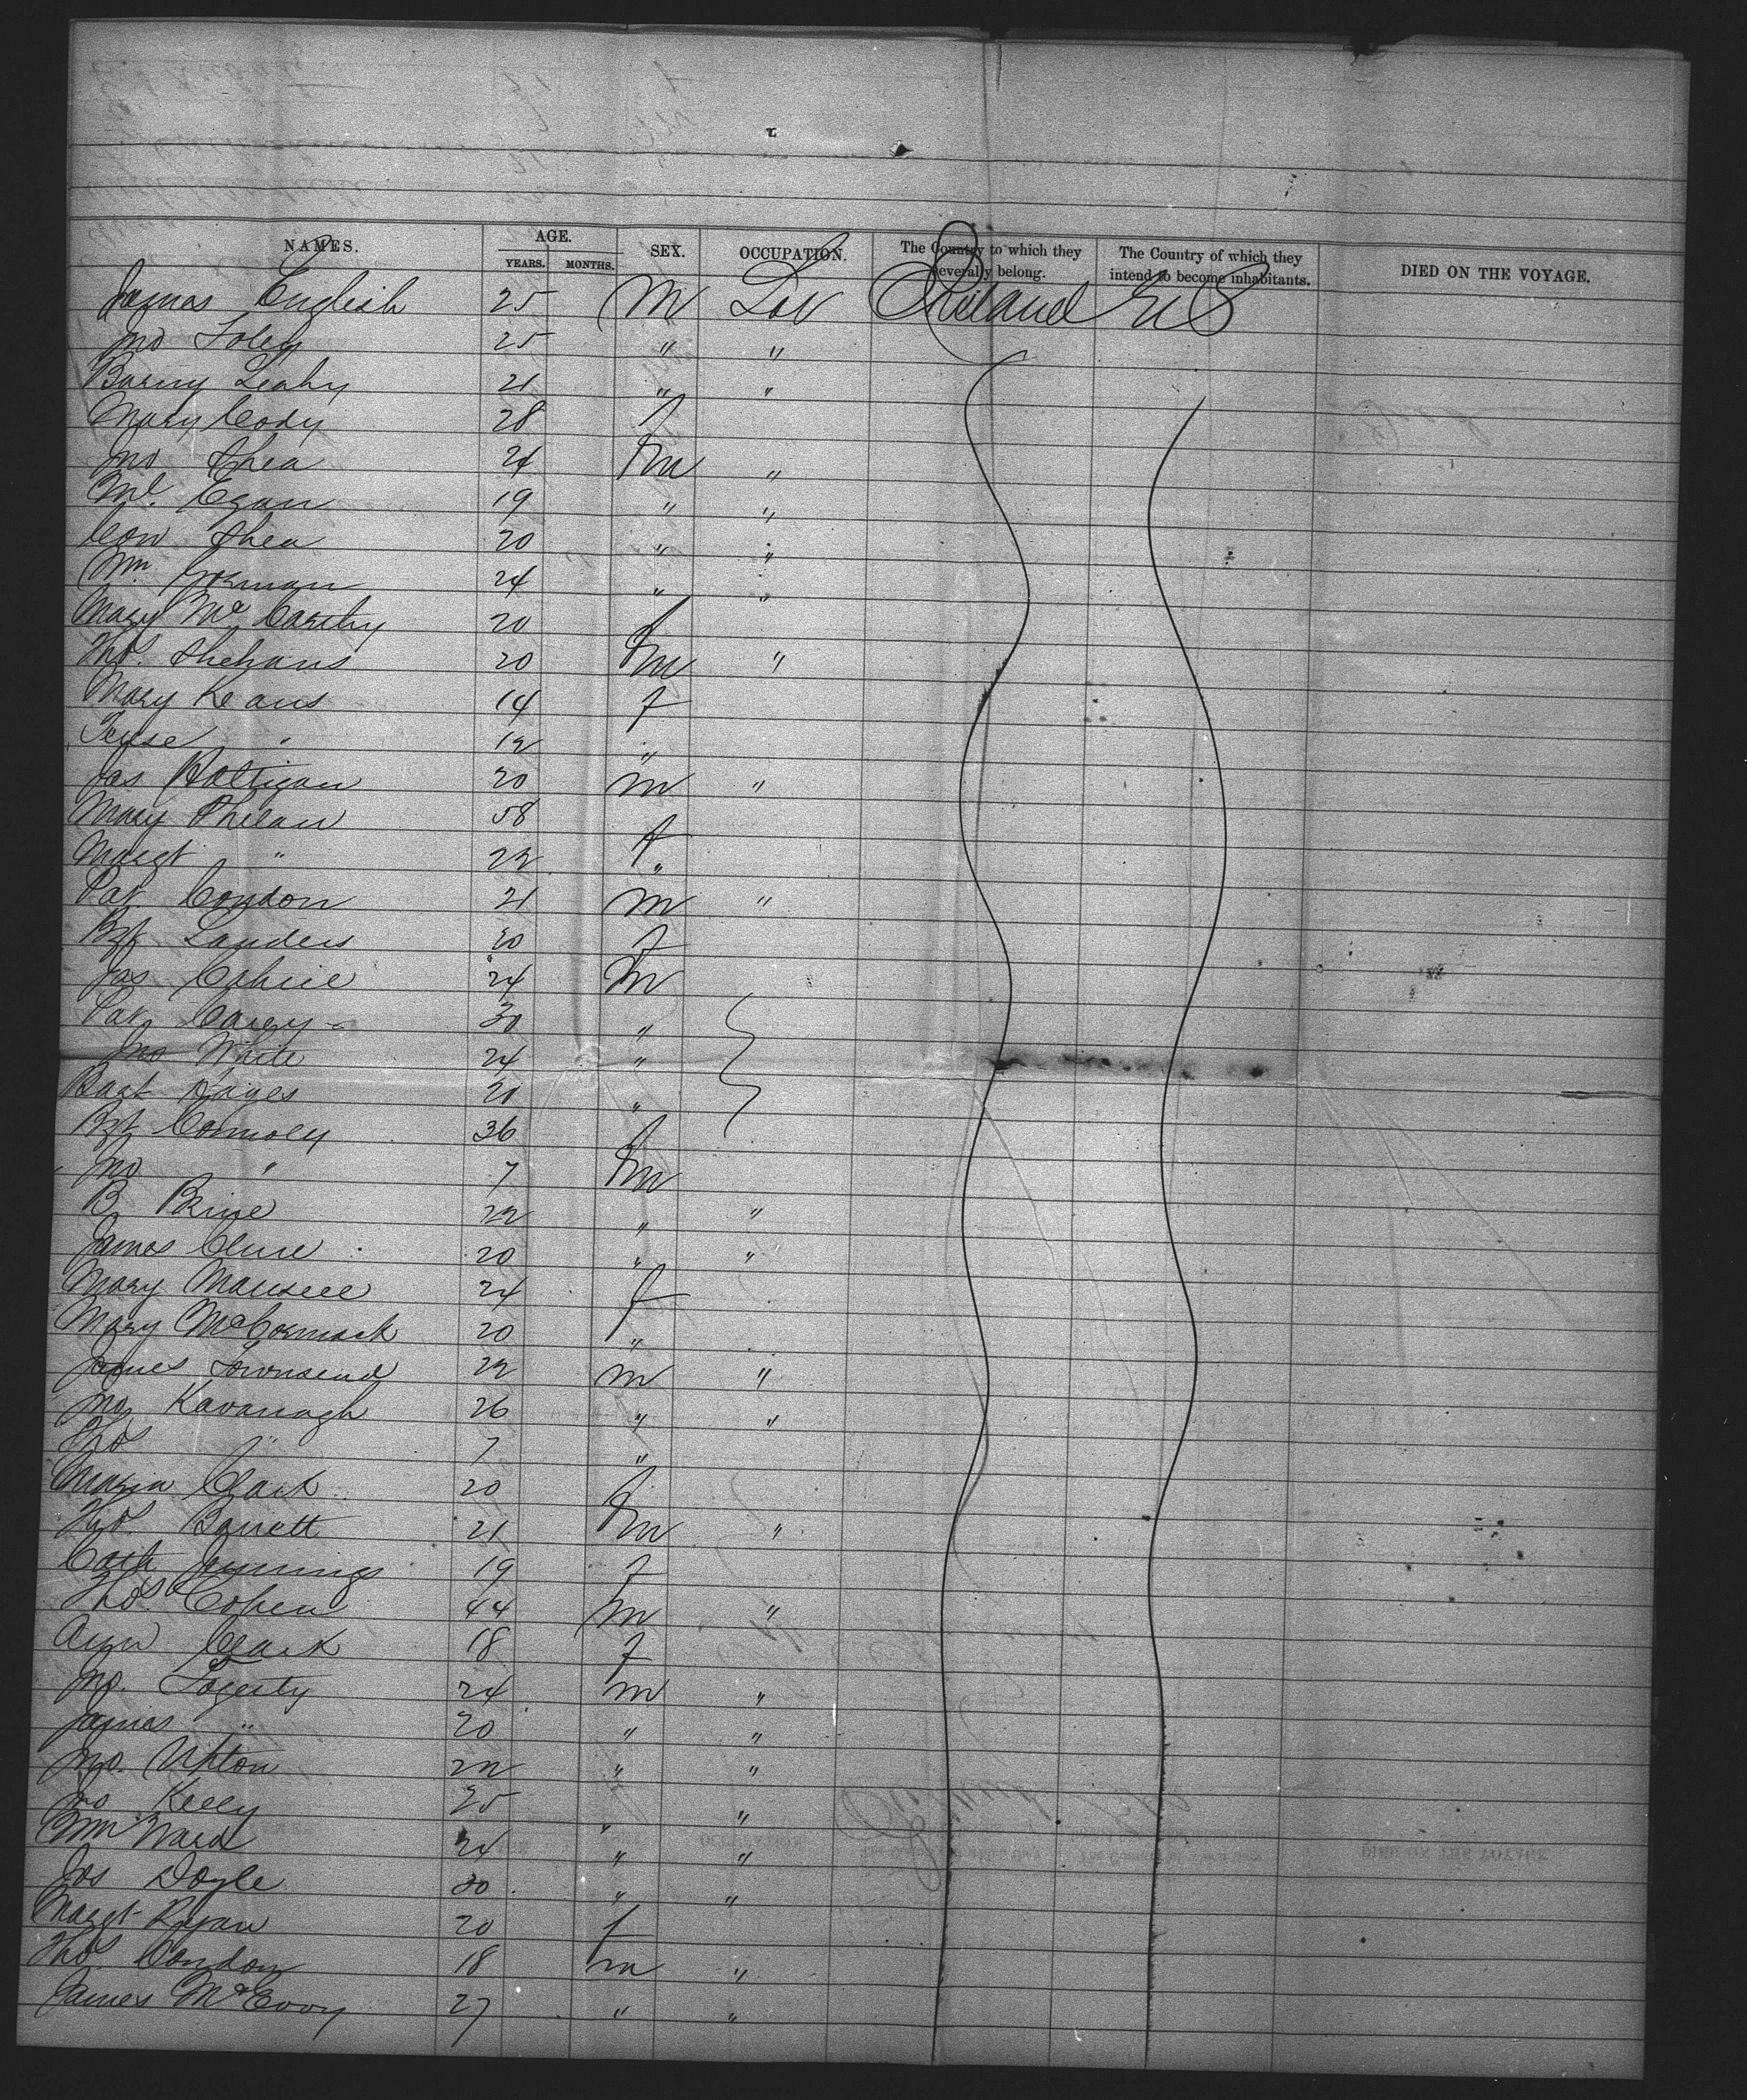 NAMES. AGE. SEX. OCCUPATION. The Country to which they severally belong. The Country of which they intend to become inhabitants. DIED ON THE VOYAGE.
YEARS. MONTHS.
James English 25 M Lab Ireland US
Jno Foley 25 " "
Barny Leahy 21 " "
Mary Cody 28 f
Jno Shea 24 m "
Ml. Egan 19 " "
Con Shea 20 " "
Wm. Gorman 24 " "
Mary McCarthy 20 f
Thos. Shehans 20 m "
Mary Keans 14 f
" 12 "
Jas Haltigan 20 m "
Mary Phelan 58 f
Margt " 22 "
Pat Condon 21 m "
Bgt Landers 20 f
Jas Cahill 24 m
Pat Carey 30 "
Jno White 24 "
Bart Hayes 20 "
Bgt Connoly 36 f
Jno " 7 m
B Brine 22 " "
James Clune 20 " "
Mary Mansell 24 f
Mary McCormack 20 "
James Townsend 22 m "
Jno Kavanagh 26 " "
Thos " 7 "
Maria Clark 20 f
Thos. Barrett 21 m "
Cath Jennings 19 f
Thos. Cohen 44 m "
Ann Clark 18 f
Jno. Fogerty 24 m "
James " 20 " "
Jno. Upton 22 " "
Jno Kelly 25 " "
Wm Ward 24 " "
Jos Doyle 30 " "
Margt Ryan 20 f
Thos Condon 18 m "
James McEvoy 27 " "